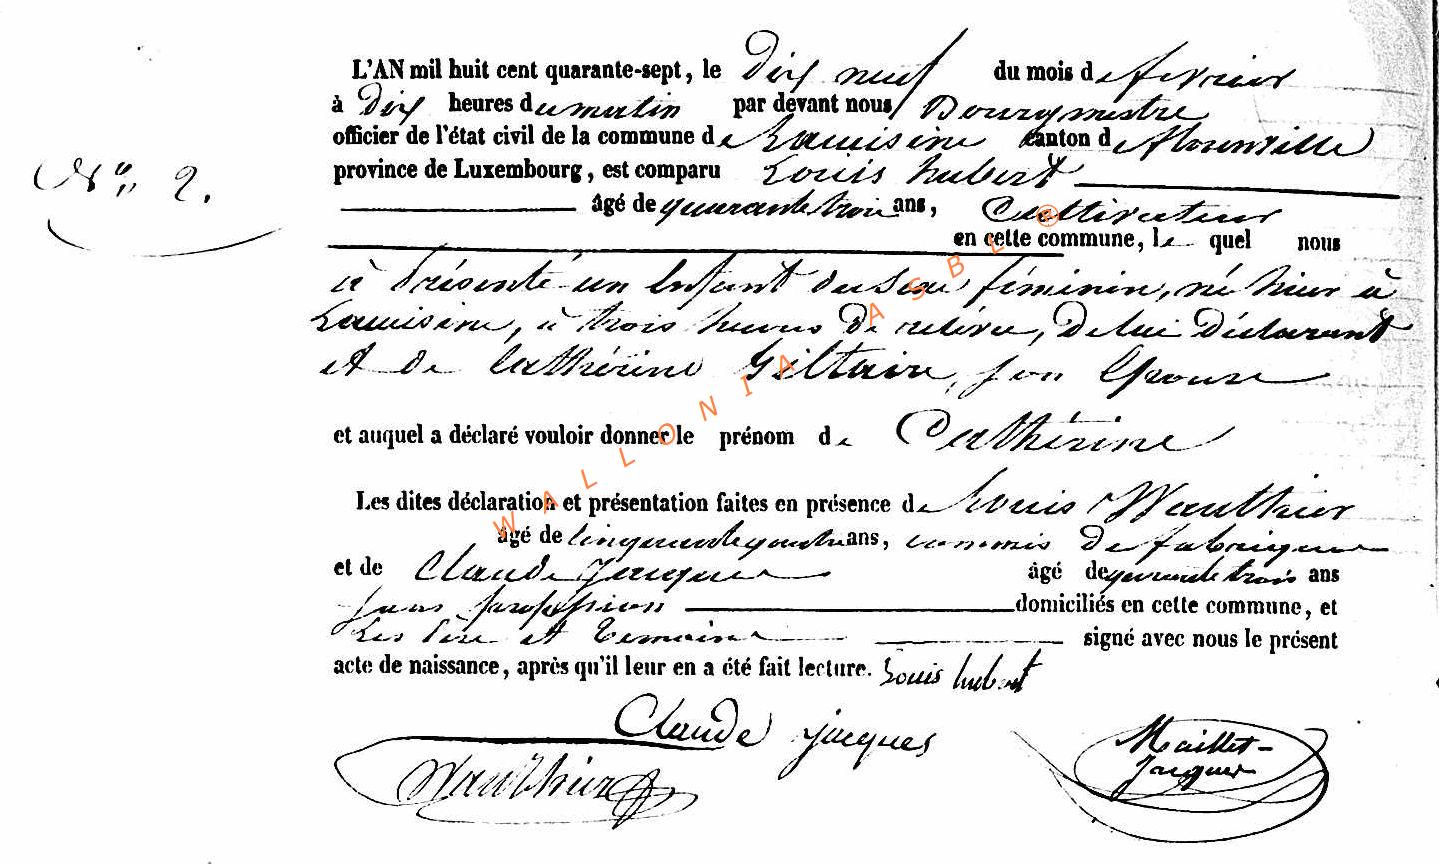 L'AN mil huit cent quarante-sept, le Dix neuf du mois de fevrier
à Dix heures du matin par devant nous Bourgmestre
officier de l'état civil de la commune de Lacuisine canton de Florenville
Nº 2.
province de Luxembourg, est comparu Louis hubert
âgé de quarante trois ans, Cultivateur
en cette commune, le quel nous
à Présenté un Enfant du sexe féminin, né hier à
Lacuisine, à trois heures De relevée, De lui Déclarant
et de Cathérine Giltaire, son Epouse
et auquel a déclaré vouloir donner le prénom de Cathérine
Les dites déclaration et présentation faites en présence de Louis Wauthier
âgé de Cinquante quatre ans, commis De fabrique
et de Claude Jacques âgé de quarante trois ans
sans profession domiciliés en cette commune, et
Les Père et Temoins signé avec nous le présent
acte de naissance, après qu'il leur en a été fait lecture. Louis hubert
Claude jacques
Maillet-
Jacques
Wauthier
WALLONIA ASBL ®